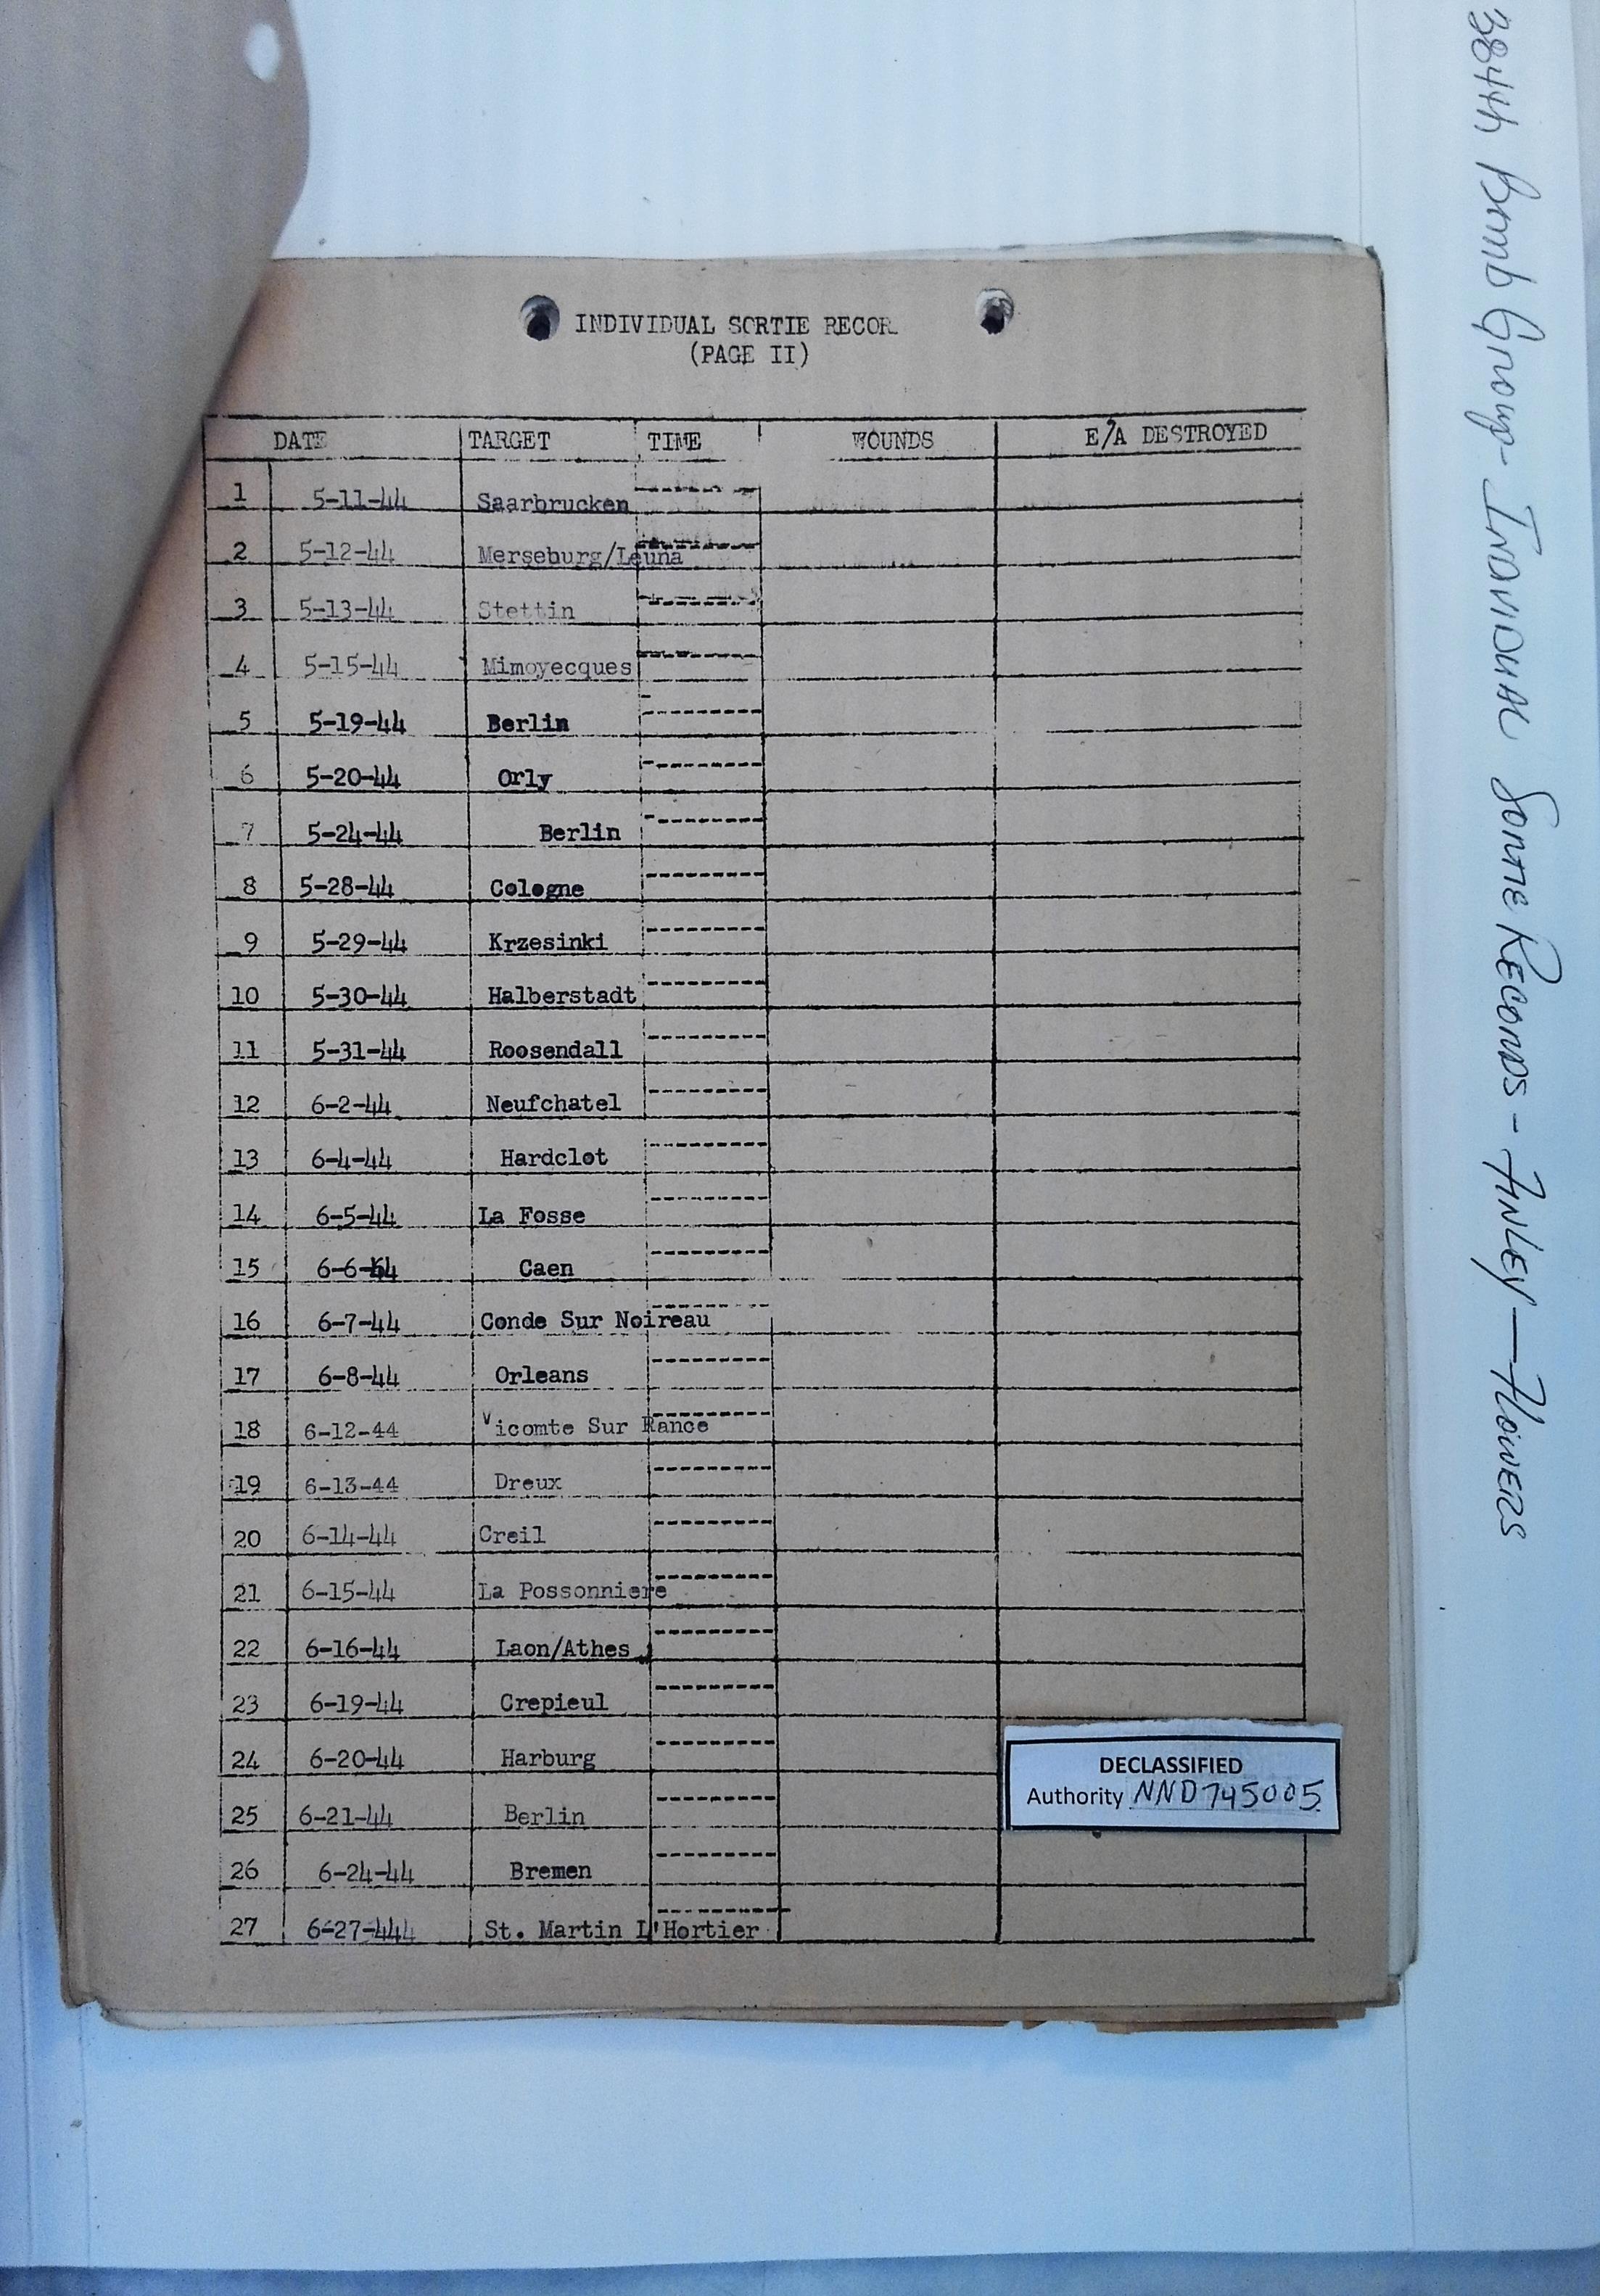 INDIVIDUAL SORTIE RECOR
(PAGE II)
DATE TARGET TIME WOUNDS E/A DESTROYED
1 5-11-44 Saarbrucken
2 5-12-44 Merseburg/Leuna
3 5-13-44 Stettin
4 5-15-44 Mimoyecques
5 5-19-44 Berlin
6 5-20-44 Orly
7 5-24-44 Berlin
8 5-28-44 Cologne
9 5-29-44 Krzesinki
10 5-30-44 Halberstadt
11 5-31-44 Roosendall
12 6-2-44 Neufchatel
13 6-4-44 Hardclot
14 6-5-44 La Fosse
15 6-6-44 Caen
16 6-7-44 Conde Sur Noireau
17 6-8-44 Orleans
18 6-12-44 Vicomte Sur Rance
19 6-13-44 Dreux
20 6-14-44 Creil
21 6-15-44 La Possonniere
22 6-16-44 Laon/Athes
23 6-19-44 Crepieul
24 6-20-44 Harburg
25 6-21-44 Berlin
26 6-24-44 Bremen
27 6-27-444 St. Martin L'Hortier
DECLASSIFIED
Authority NND745005
384th Bomb Group - INDIVIDUAL SORTIE RECORDS - FINLEY — FLOWERS